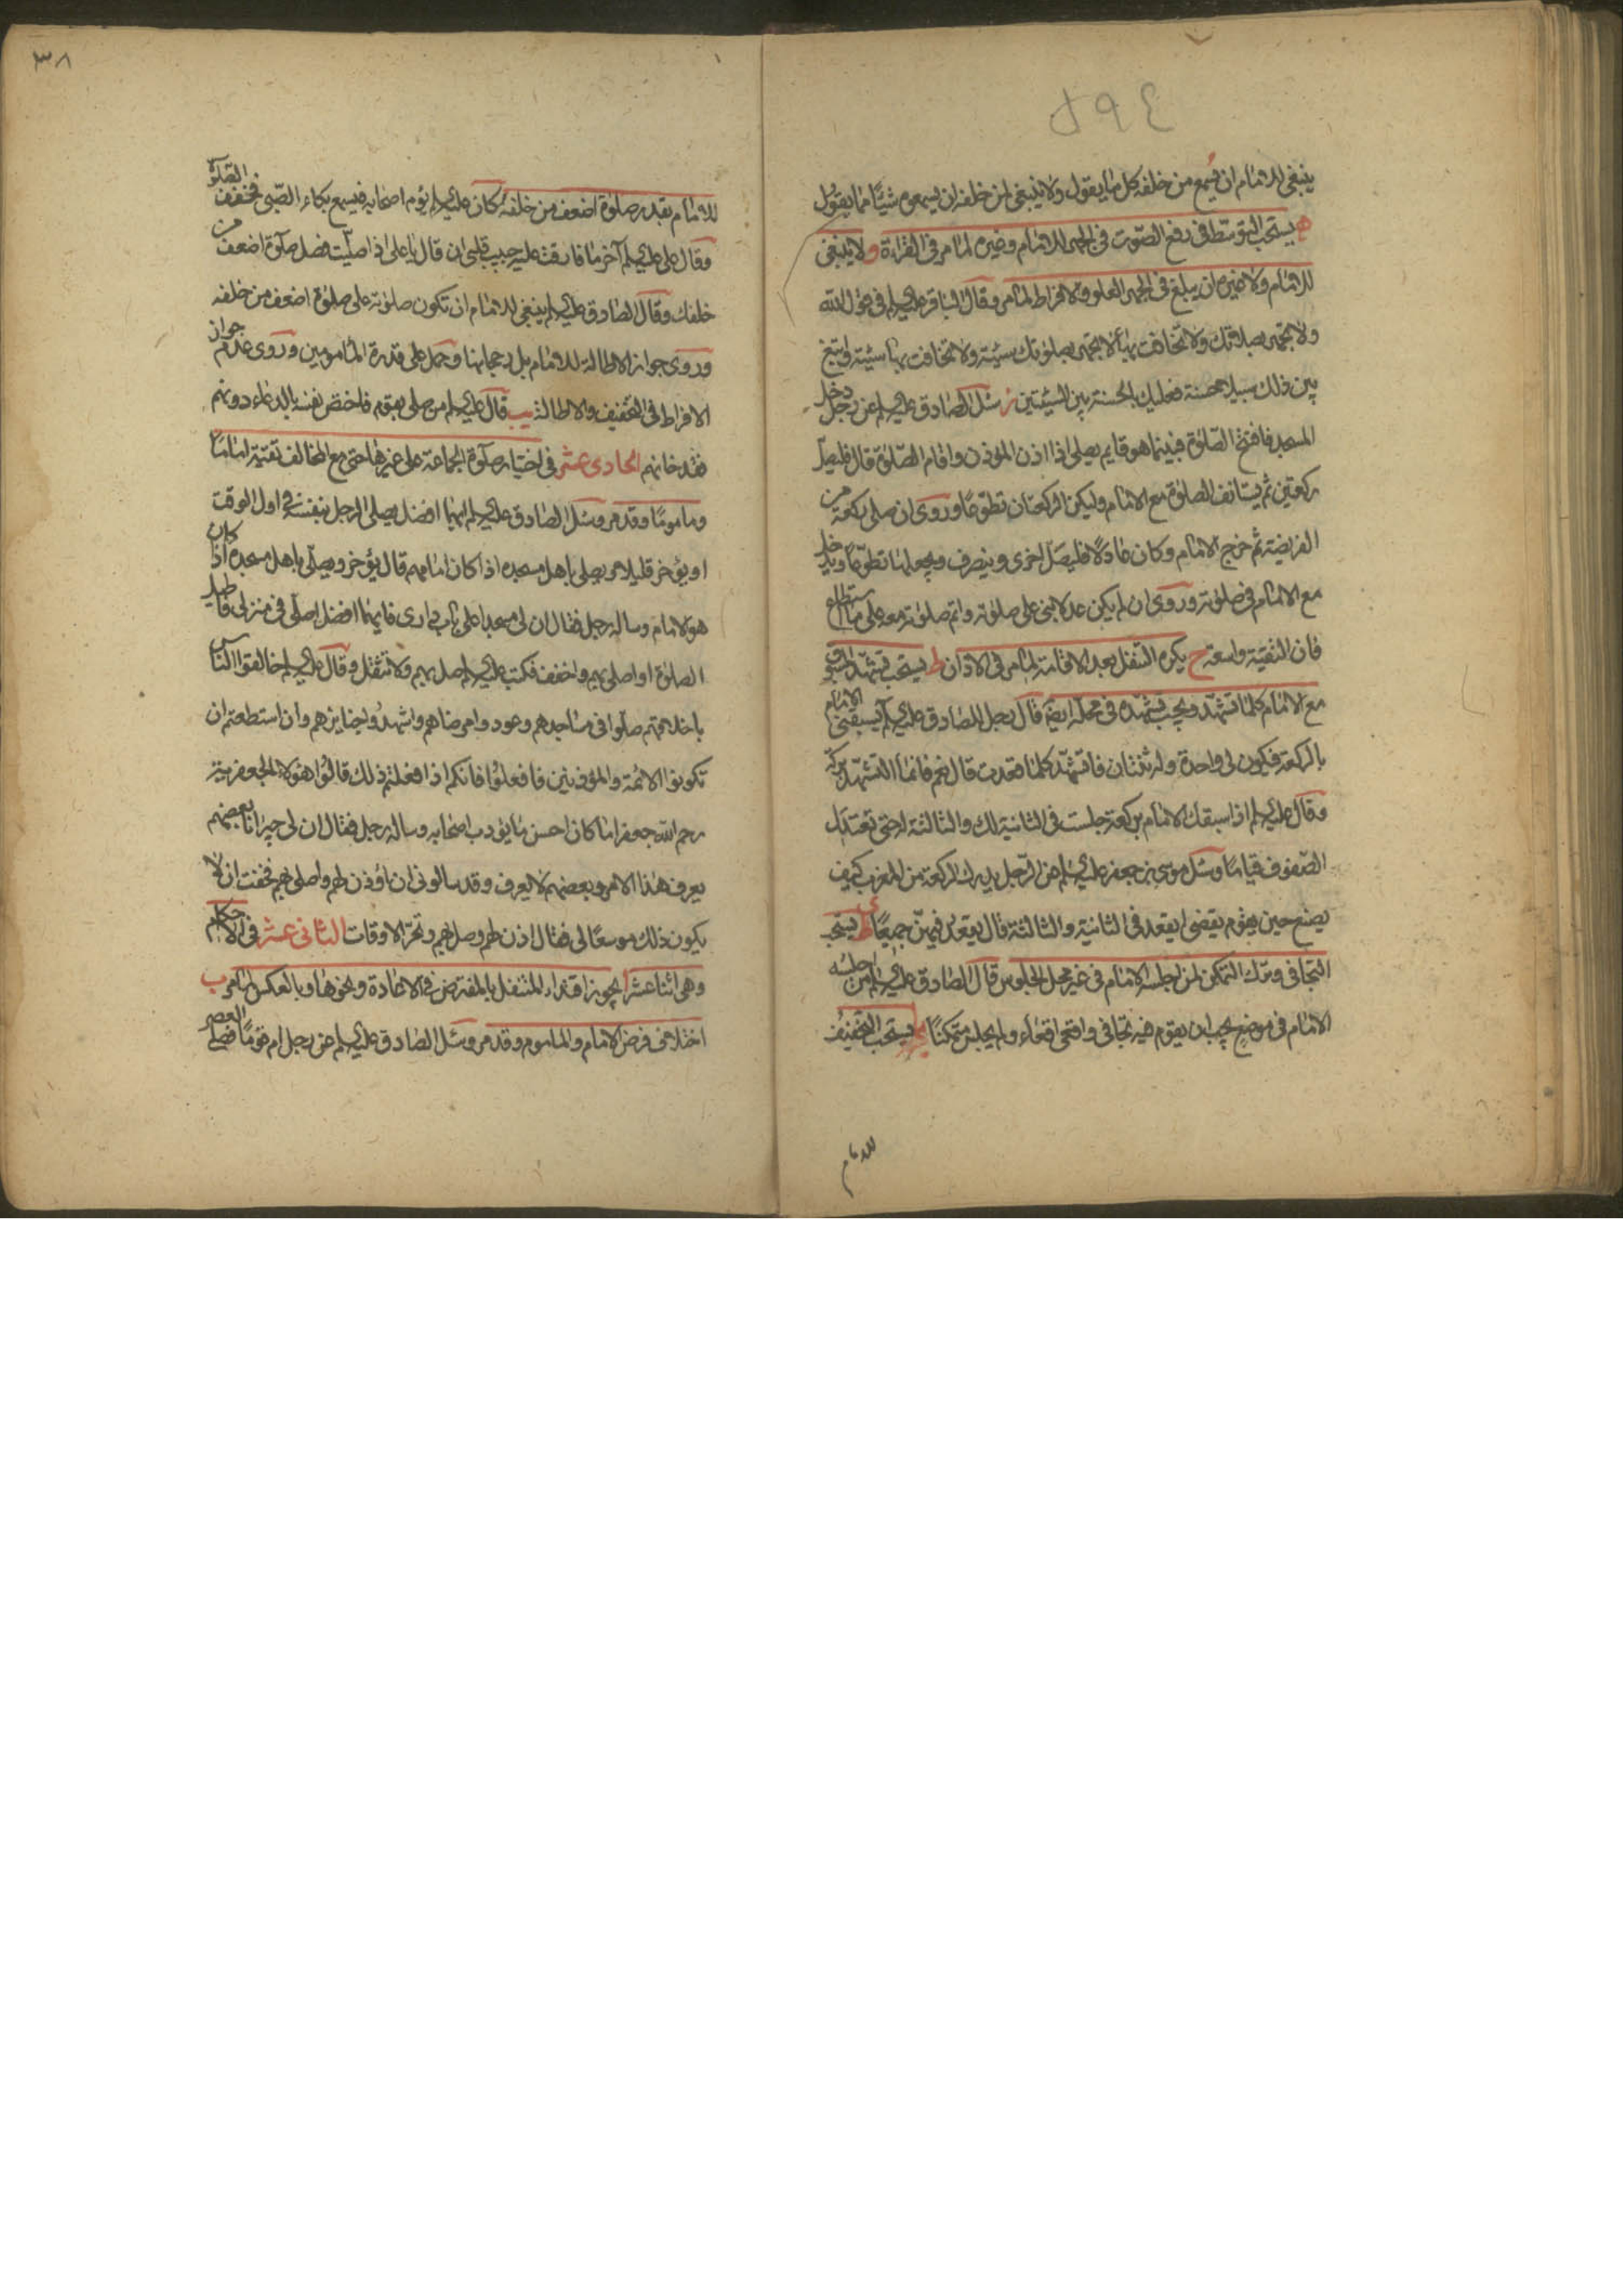 ٥٩٤
ينبغى للامام ان يسمع من خلفه كل ما يقول ولا ينبغى لمن خلفه ان يسمعوه شيئا مما يقول
ه يستحب التوسط فى رفع الصوت فى الجهر للامام وغيره لما مر فى القراءة و لا ينبغى
للامام ولا غيره ان يبلغ فى الجهر العلو والافراط لما مر وقال الباقر عليه السلم فى قول الله
ولا تجهر بصلاتك ولا تخافت بها لا تجهر بصلوتك سيئة ولا تخافت بها سيئة وابتغ
بين ذلك سبيلا حسنة فعليك بالحسنة بين السيئتين ز سئل الصادق عليه السلم عن رجل دخل
المسجد فافتتح الصلوة فبينما هو قايم يصلى اذا اذن المؤذن واقام الصلوة قال فليصل
ركعتين ثم يستانف الصلوة مع الامام وليكن الركعتان تطوعا وروى ان صلى ركعة من
الفريضة ثم خرج الامام وكان عادلا فليصل اخرى وينصرف ويجعلها تطوعا ويدخل
مع الامام فى صلوته وروى ان لم يكن عدلا بنى على صلوته واتم صلوته معه على ما استطاع
فان التقية واسعة ح يكره التنفل بعد الاقامة لما مر فى الاذان ط يستحب تشهد المسبوق
مع الامام كلما تشهد ويجب تشهده فى محله ايضا قال رجل للصادق عليه السلم يسبقنى الامام
بالركعة فيكون لى واحدة وله ثنتان فاتشهد كلما قعدت قال نعم فانما التشهد بركة
وقال عليه السلم اذا سبقك الامام بركعة جلست فى الثانية لك والثالثة له حتى تعتدل
الصفوف قياما وسئل موسى بن جعفر عليه السلم عن الرجل يدرك الركعة من المغرب كيف
يصنع حين يقوم يقضى ايقعد فى الثانية والثالثة قال يقعد فيهن جميعا ى يستحب
التجافى وترك التمكن لمن اجلسه الامام فى غير محل الجلوس قال الصادق عليه السلم من اجلسه
الامام فى موضع يجب ان يقوم فيه تجافى واقعى اقعاء ولم يجلس متمكنا يا يستحب التخفيف
للامام
٣٨
للامام بقدر صلوة اضعف من خلفه كان عليه السلم يؤم اصحابه فيسمع بكاء الصبى فيخفف الصلوة
وقال على عليه السلم آخر ما فارقت عليه حبيب قلبى ان قال يا على اذا صليت فصل صلوة اضعف من
خلفك وقال الصادق عليه السلم ينبغى للامام ان تكون صلوته على صلوة اضعف من خلفه
وروى جواز الاطالة للامام بل رجحانها وحمل على قدرة المأمومين وروى عدم جواز
الافراط فى التخفيف والاطالة يب قال عليه السلم من صلى بقوم فاختص نفسه بالدعاء دونهم
فقد خانهم الحادى عشر فى اختيار صلوة الجماعة على غيرها حتى مع المخالف تقية اماما
وماموما وقد مر وسئل الصادق عليه السلم ايهما افضل يصلى الرجل بنفسه فى اول الوقت
او يؤخر قليلا و يصلى باهل مسجده اذا كان امامهم قال يؤخر ويصلى باهل مسجده اذا كان
هو الامام وساله رجل فقال ان لى مسجدا على باب دارى فايهما افضل اصلى فى منزلى فاطيل
الصلوة او اصلى بهم واخفف فكتب عليه السلم صل بهم ولا تثقل وقال عليه السلم خالقوا الناس
باخلاقهم صلوا فى مساجدهم وعودوا مرضاهم واشهدوا جنايزهم وان استطعتم ان
تكونوا الائمة والمؤذنين فافعلوا فانكم اذا فعلتم ذلك قالوا هؤلاء الجعفرية
رحم الله جعفرا ما كان احسن ما يؤدب اصحابه وساله رجل فقال ان لى جيرانا بعضهم
يعرف هذا الامر وبعضهم لا يعرف وقد سالونى ان اؤذن لهم واصلى بهم فخفت ان لا
يكون ذلك موسعا لى فقال اذن لهم وصل بهم وتحر الاوقات الثانى عشر فى الاحكام
وهى اثنا عشر ا يجوز اقتداء المتنفل بالمفترض فى الاعادة ونحوها وبالعكس لما مر ب
اختلاف فرض الامام والماموم وقد مر وسئل الصادق عليه السلم عن رجل ام قوما فصلى العصر